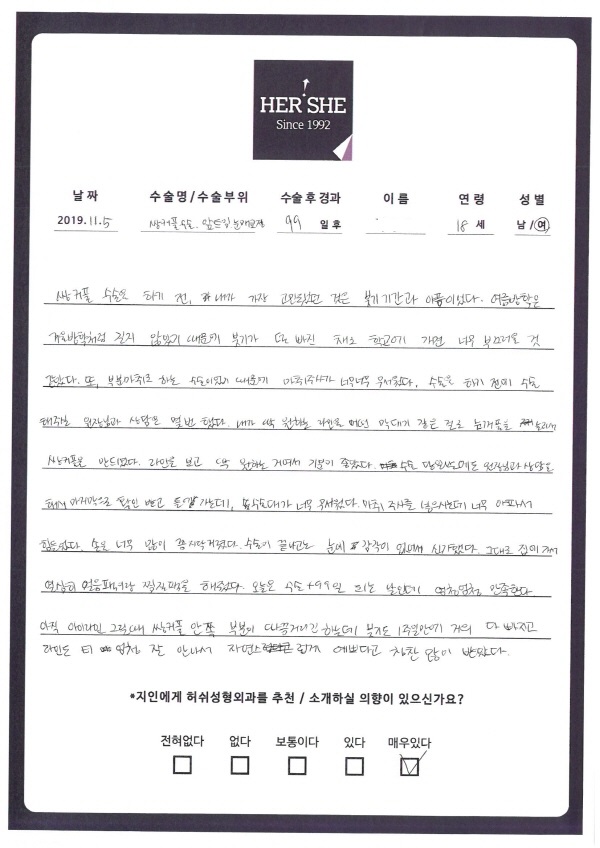 HER SHE
Since 1992
날 짜 수술명/수술부위 수술후경과 이 름 연 령 성 별
2019.11.5 쌍커풀수술. 앞트임 눈매교정 99 일 후 18 세 남/여
쌍커풀 수술을 하기 전, 내가 가장 고민되었던 것은 붓기기간과 아픔이었다. 여름방학은
겨울방학처럼 길지 않았기 때문에 붓기가 덜 빠진 채로 학교에 가면 너무 부끄러울 것
같았다. 또, 부분마취로 하는 수술이었기 때문에 마취주사가 너무너무 무서웠다. 수술을 하기 전에 수술
해주는 원장님과 상담을 몇번 했다. 내가 딱 원하는 라인을 어떤 막대기 같은 걸로 눈꺼풀을 눌러서
쌍커풀을 만드셨다. 라인을 보고 딱 원하는 거여서 기분이 좋았다. 수술 당일에도 원장님과 상담을
해서 마지막으로 확인 받고 들어갔는데, 수술대가 너무 무서웠다. 마취 주사를 넣으시는데 너무 아파서
힘들었다. 손을 너무 많이 꼼지락거렸다. 수술이 끝나고는 눈에 감각이 없어서 신기했다. 그대로 집에 가서
열심히 얼음팩이랑 찜질팩을 해줬었다. 오늘은 수술 +99일 되는 날인데 엄청엄청 만족한다.
아직 아이라인 그릴때 쌍커풀 안쪽 부분이 따끔거리긴 하는데 붓기도 1주일안에 거의 다 빠지고
라인도 티 엄청 잘 안나서 자연스럽게 예쁘다고 칭찬 많이 받았다.
*지인에게 허쉬성형외과를 추천 / 소개하실 의향이 있으신가요?
전혀없다 없다 보통이다 있다 매우있다